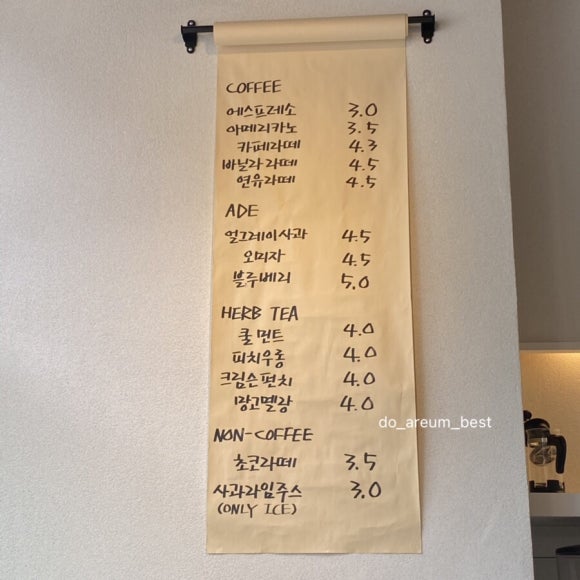 COFFEE
에스프레소 3.0
아메리카노 3.5
카페라떼 4.3
바닐라라떼 4.5
연유라떼 4.5
ADE
얼그레이사과 4.5
오미자 4.5
블루베리 5.0
HERB TEA
쿨민트 4.0
피치우롱 4.0
크림슨펀치 4.0
망고멜랑 4.0
do_areum_best
NON-COFFEE
초코라떼 3.5
사과라임주스 3.0
(ONLY ICE)